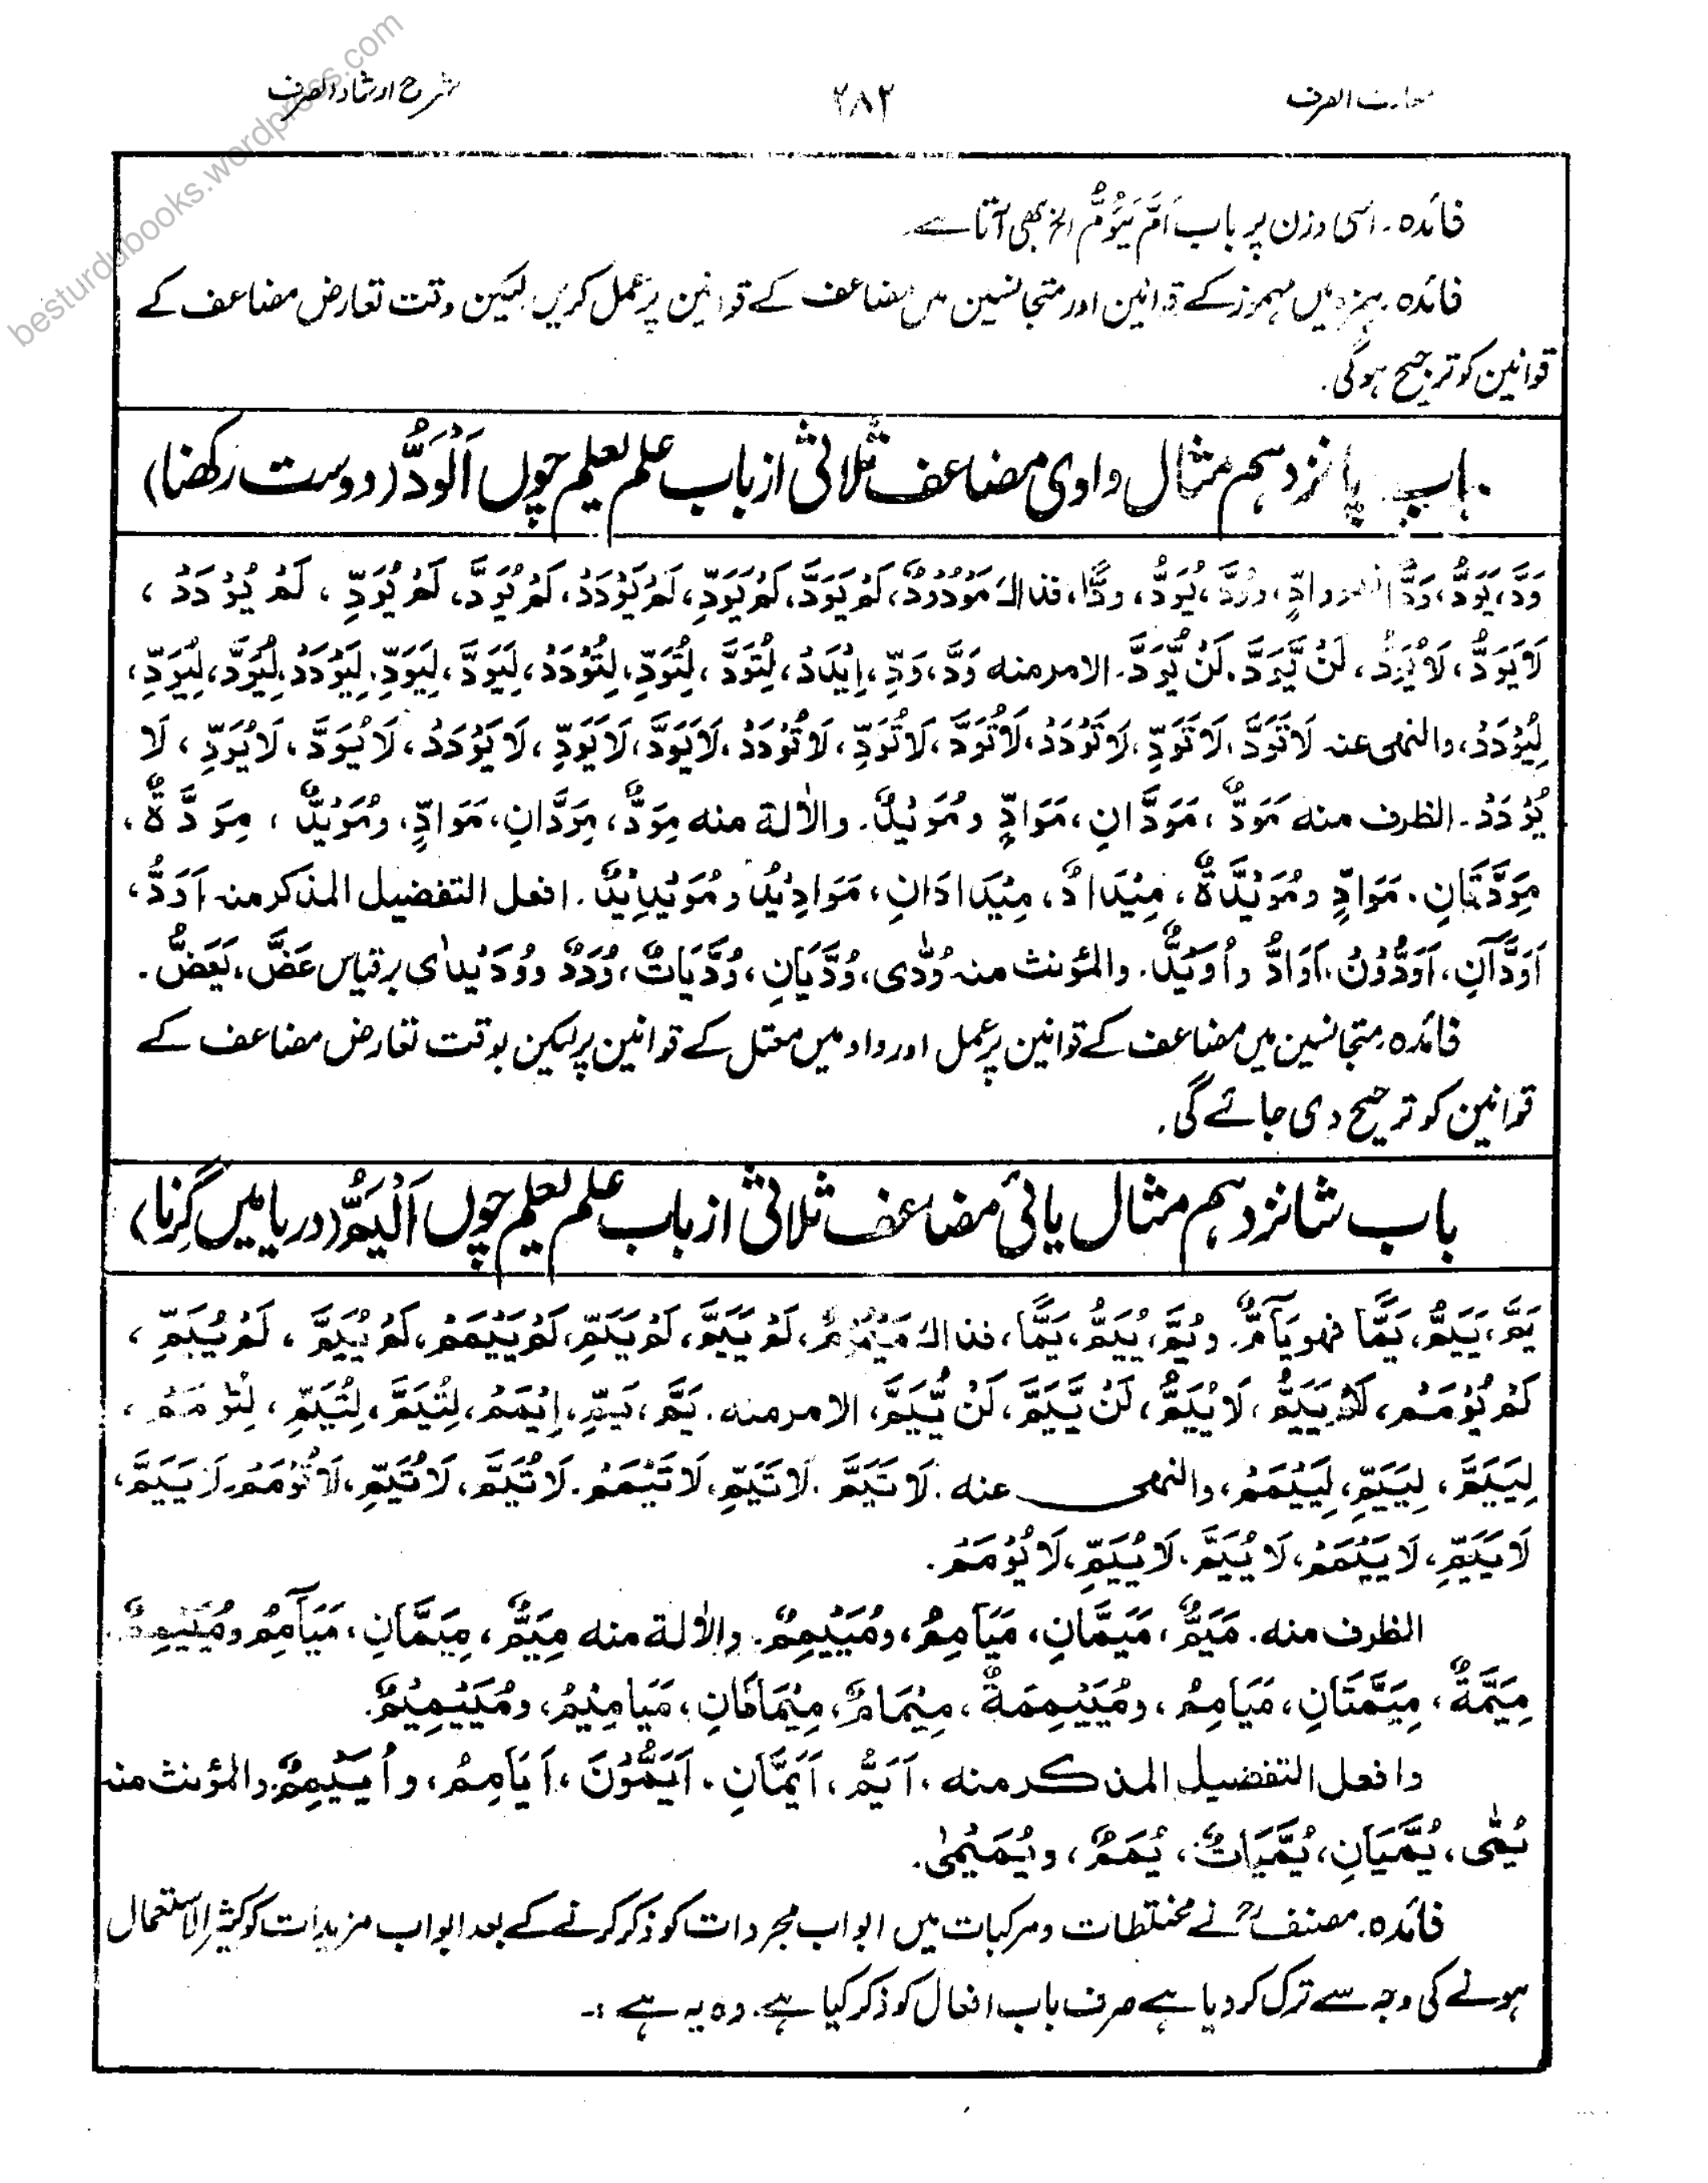 معارف الصرف ۲۸۲ شرح ارشاد الصرف
besturdubooks.wordpress.com
فائدہ۔ اسی وزن پر باب اَمَّ یَؤُمُّ الخ بھی آتا ہے
فائدہ۔ ہمزہ میں مہموز کے قوانین اور متجانسین میں مضاعف کے قوانین پر عمل کریں لیکن وقت تعارض مضاعف کے
قوانین کو ترجیح ہوگی۔
باب پانزدہم مثال واوی مضاعف ثلاثی از باب علم یعلم چوں اَلْوَدُّ (دوست رکھنا)
وَدَّ، یَوَدُّ، وَدًّا فهو وَادٌّ، وُدَّ، یُوَدُّ، وَدًّا، فذاك مَوْدُوْدٌ، لَمْ یَوَدَّ، لَمْ یَوَدِّ، لَمْ یَوْدَدْ، لَمْ یُوَدَّ، لَمْ یُوَدِّ، لَمْ یُوْدَدْ،
لَا یَوَدُّ، لَا یُوَدُّ، لَنْ یَّوَدَّ۔ لَنْ یُّوَدَّ۔ الامر منه وَدَّ، وَدِّ، اِیْدَدْ، لِتُوَدَّ، لِتُوَدِّ، لِتُوْدَدْ، لِیَوَدَّ، لِیَوَدِّ، لِیَوْدَدْ، لِیُوَدَّ، لِیُوَدِّ،
لِیُوْدَدْ، والنهی عنه لَا تَوَدَّ، لَا تَوَدِّ، لَا تَوْدَدْ، لَا تُوَدَّ، لَا تُوَدِّ، لَا تُوْدَدْ، لَا یَوَدَّ، لَا یَوَدِّ، لَا یَوْدَدْ، لَا یُوَدَّ، لَا یُوَدِّ، لَا
یُوْدَدْ۔ الظرف منه مَوَدٌّ، مَوَدَّانِ، مَوَادٌّ و مُوَیْدٌّ۔ والاٰلة منه مِوَدٌّ، مِوَدَّانِ، مَوَادٌّ، ومُوَیْدٌّ، مِوَدَّةٌ،
مِوَدَّتَانِ۔ مَوَادٌّ و مُوَیْدَّةٌ، مِیْدَادٌ، مِیْدَادَانِ، مَوَادِیْدُ و مُوَیْدِیْدٌ۔ افعل التفضیل المذکر منه اَوَدُّ،
اَوَدَّانِ، اَوَدُّوْنَ۔ اَوَادُّ و اُوَیْدٌّ۔ والمؤنث منه وُدّٰی، وُدَّیَانِ، وُدَّیَاتٌ، وُدَدٌ و وُدَیْدٰی بر قیاس عَضَّ، یَعَضُّ۔
فائدہ۔ متجانسین میں مضاعف کے قوانین پر عمل اور واو میں معتل کے قوانین پر لیکن بوقت تعارض مضاعف کے
قوانین کو ترجیح دی جائے گی۔
باب شانزدہم مثال یائی مضاعف ثلاثی از باب علم یعلم چوں اَلْیَمُّ (دریا میں گرنا)
یَمَّ، یَیَمُّ، یَمًّا فهو یَآمٌّ۔ ویُمَّ، یُیَمُّ، یَمًّا، فذاك مَیْمُوْمٌ، لَمْ یَیَمَّ، لَمْ یَیَمِّ، لَمْ یَیْمَمْ، لَمْ یُیَمَّ، لَمْ یُیَمِّ،
لَمْ یُوْمَمْ، لَا یَیَمُّ، لَا یُیَمُّ، لَنْ یَّیَمَّ، لَنْ یُّیَمَّ، الامر منه۔ یَمَّ، یَمِّ، اِیْمَمْ، لِتُیَمَّ، لِتُیَمِّ، لِتُوْمَمْ،
لِیَیَمَّ، لِیَیَمِّ، لِیَیْمَمْ، والنهی عنه۔ لَا تَیَمَّ۔ لَا تَیَمِّ، لَا تَیْمَمْ۔ لَا تُیَمَّ، لَا تُیَمِّ، لَا تُوْمَمْ۔ لَا یَیَمَّ،
لَا یَیَمِّ، لَا یَیْمَمْ، لَا یُیَمَّ، لَا یُیَمِّ، لَا یُوْمَمْ۔
الظرف منه۔ مَیَمٌّ، مَیَمَّانِ، مَیَامِمُ، ومُیَیْمِمٌ۔ والاٰلة منه مِیَمٌّ، مِیَمَّانِ، مَیَآمِمُ ومُیَیْمِمٌ۔
مِیَمَّةٌ، مِیَمَّتَانِ، مَیَامِمُ، ومُیَیْمِمَةٌ، مِیْمَامٌ، مِیْمَامَانِ، مَیَامِیْمُ، ومُیَیْمِیْمٌ۔
وافعل التفضیل المذکر منه، اَیَمُّ، اَیَمَّانِ۔ اَیَمُّوْنَ، اَیَامِمُ، و اُیَیْمِمٌ۔ والمؤنث منه
یُمّٰی، یُمَّیَانِ، یُمَّیَاتٌ، یُمَمٌ، و یُمَیْمٰی۔
فائدہ۔ مصنفؒ نے مختلطات و مرکبات میں ابواب مجردات کو ذکر کرنے کے بعد ابواب مزیدات کو کثیر الاستعمال
ہونے کی وجہ سے ترک کر دیا ہے صرف باب افعال کو ذکر کیا ہے۔ وہ یہ ہے :۔